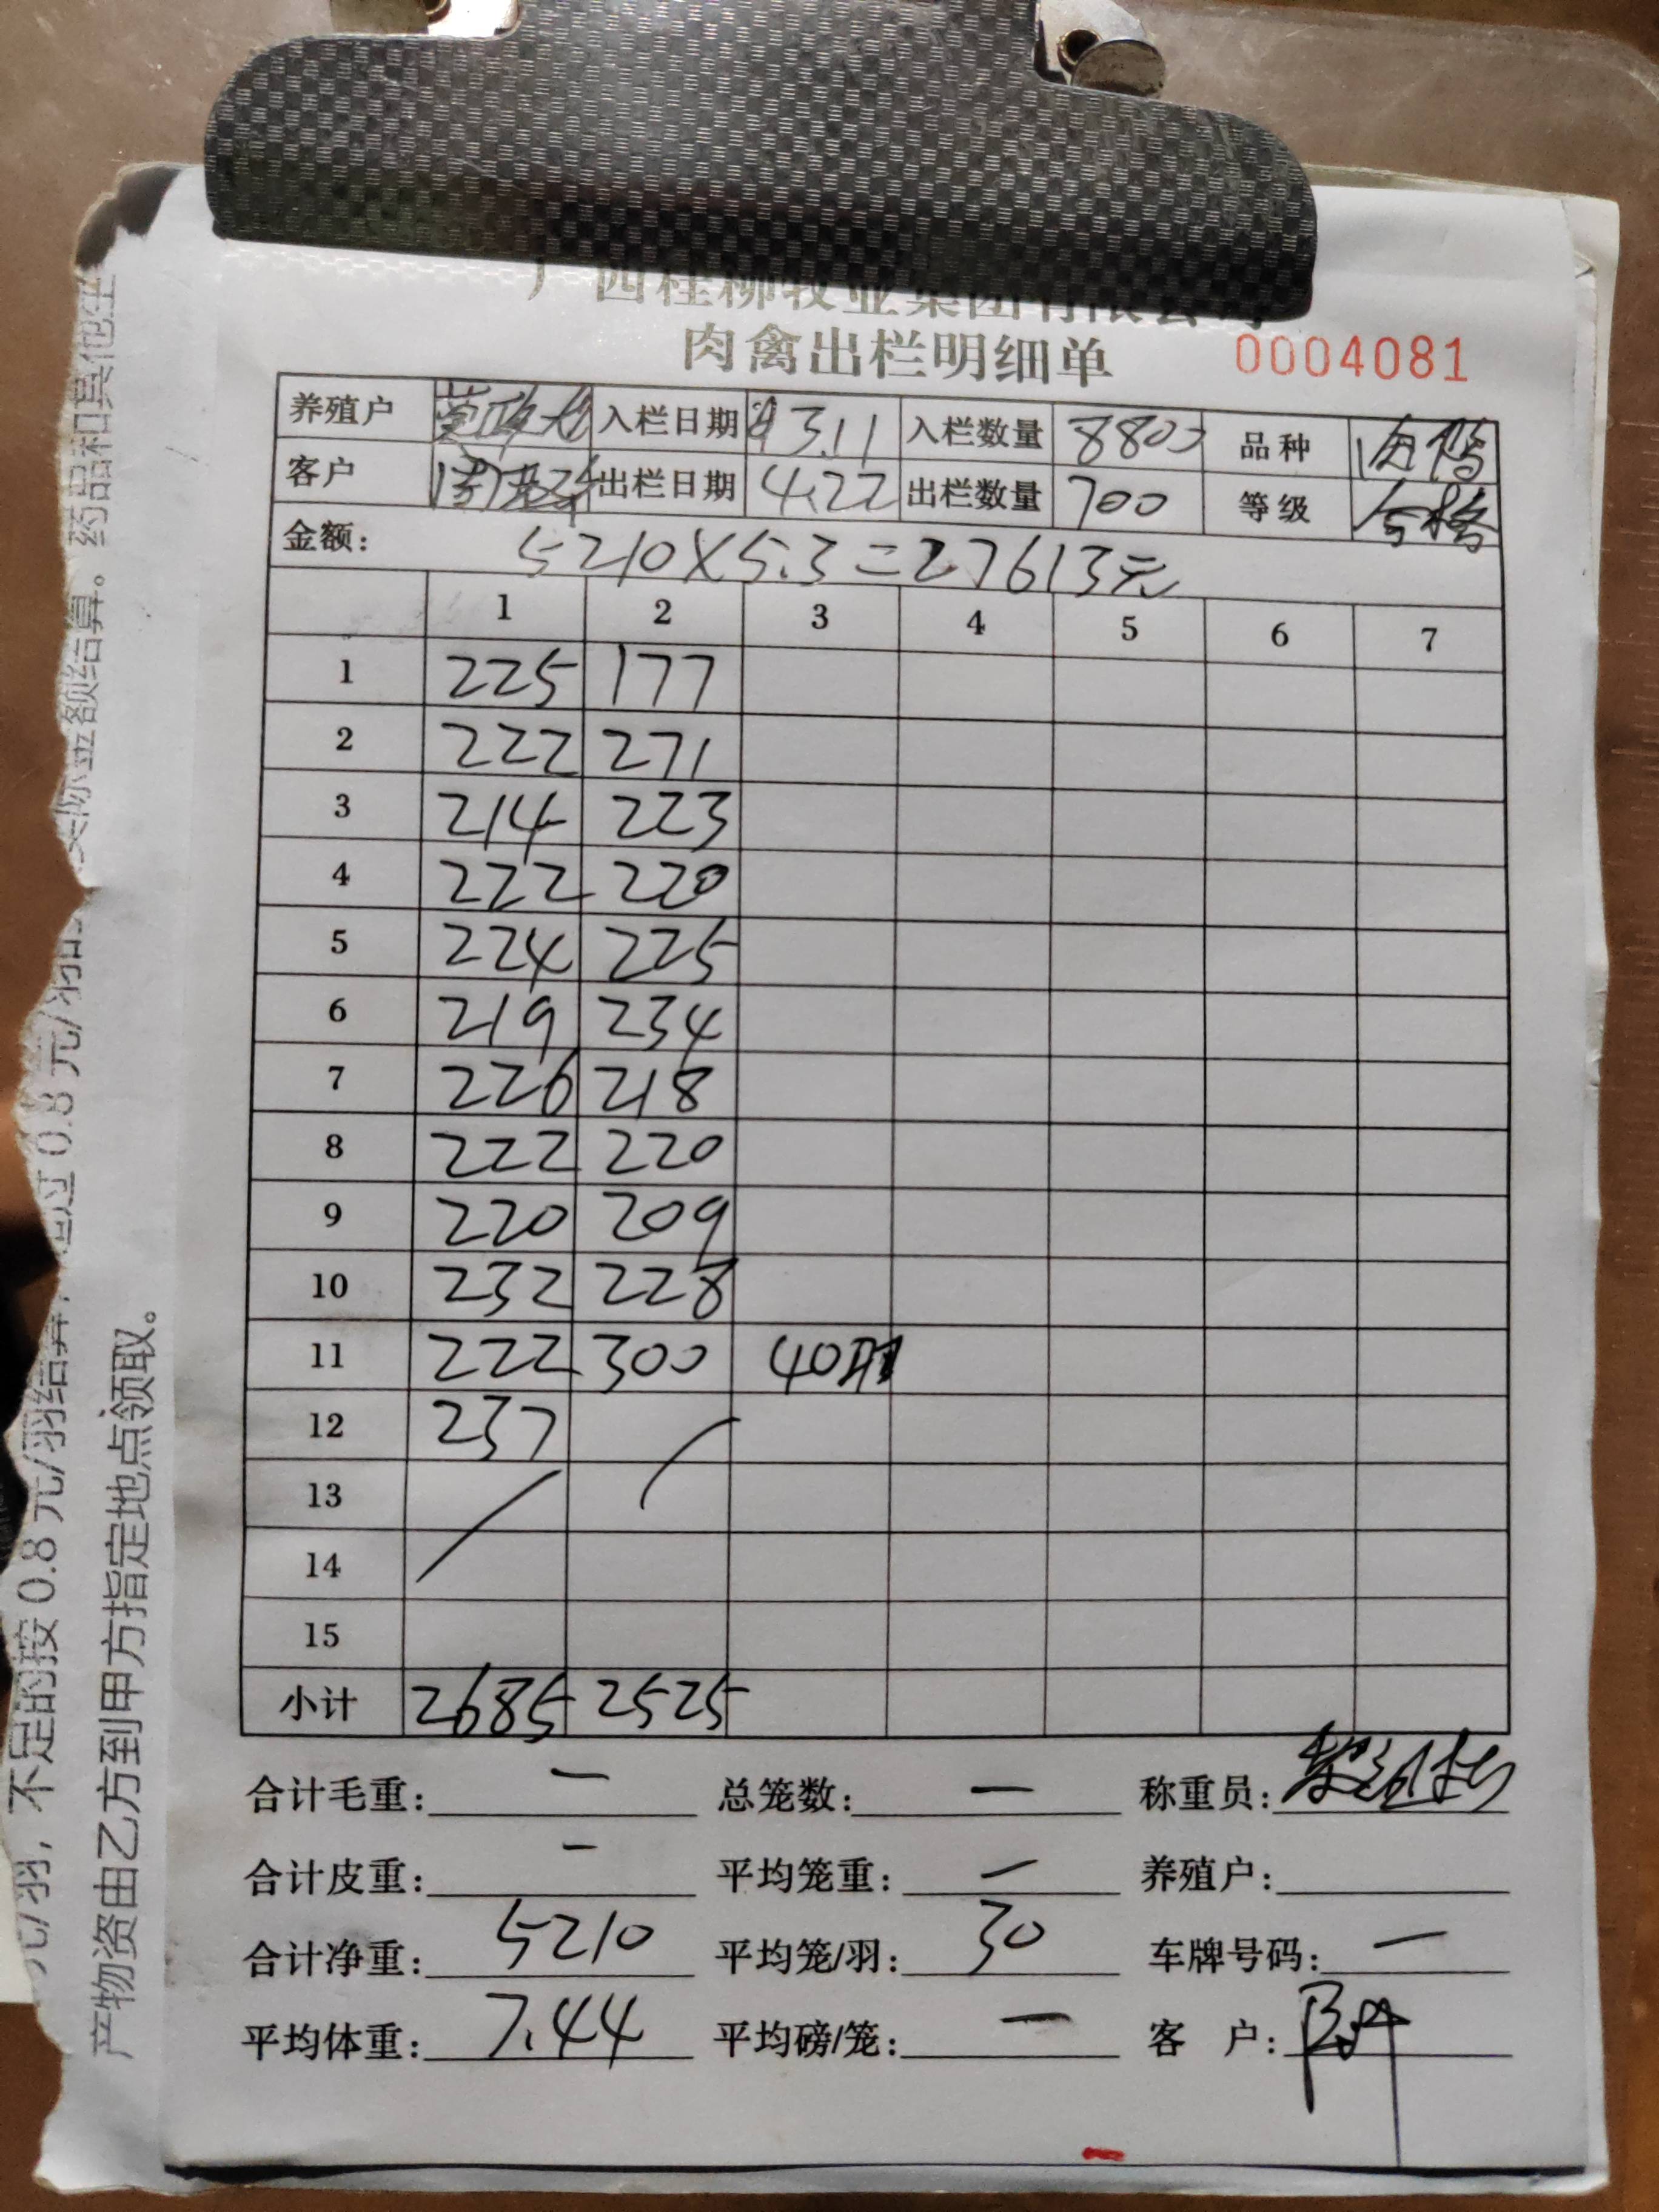 广西桂柳牧业集团有限公司
肉禽出栏明细单 0004081
养殖户 入栏日期 3.11 入栏数量 8800 品种
客户 出栏日期 4.22 出栏数量 700 等级 合格
金额： 5210×5.3=27613元
1 2 3 4 5 6 7
1 225 177
2 222 271
3 214 223
4 222 220
5 224 225
6 219 234
7 226 218
8 222 220
9 220 209
10 232 228
11 222 300 40羽
12 237
13
14
15
小计 2685 2525
合计毛重： — 总笼数： — 称重员：
合计皮重： - 平均笼重： — 养殖户：
合计净重： 5210 平均笼/羽： 30 车牌号码： —
平均体重： 7.44 平均磅/笼： — 客 户：
元/羽，不足的按 0.8 元/羽结算，超过 0.8 元/羽 额结算。药品和其他
产物资由乙方到甲方指定地点领取。